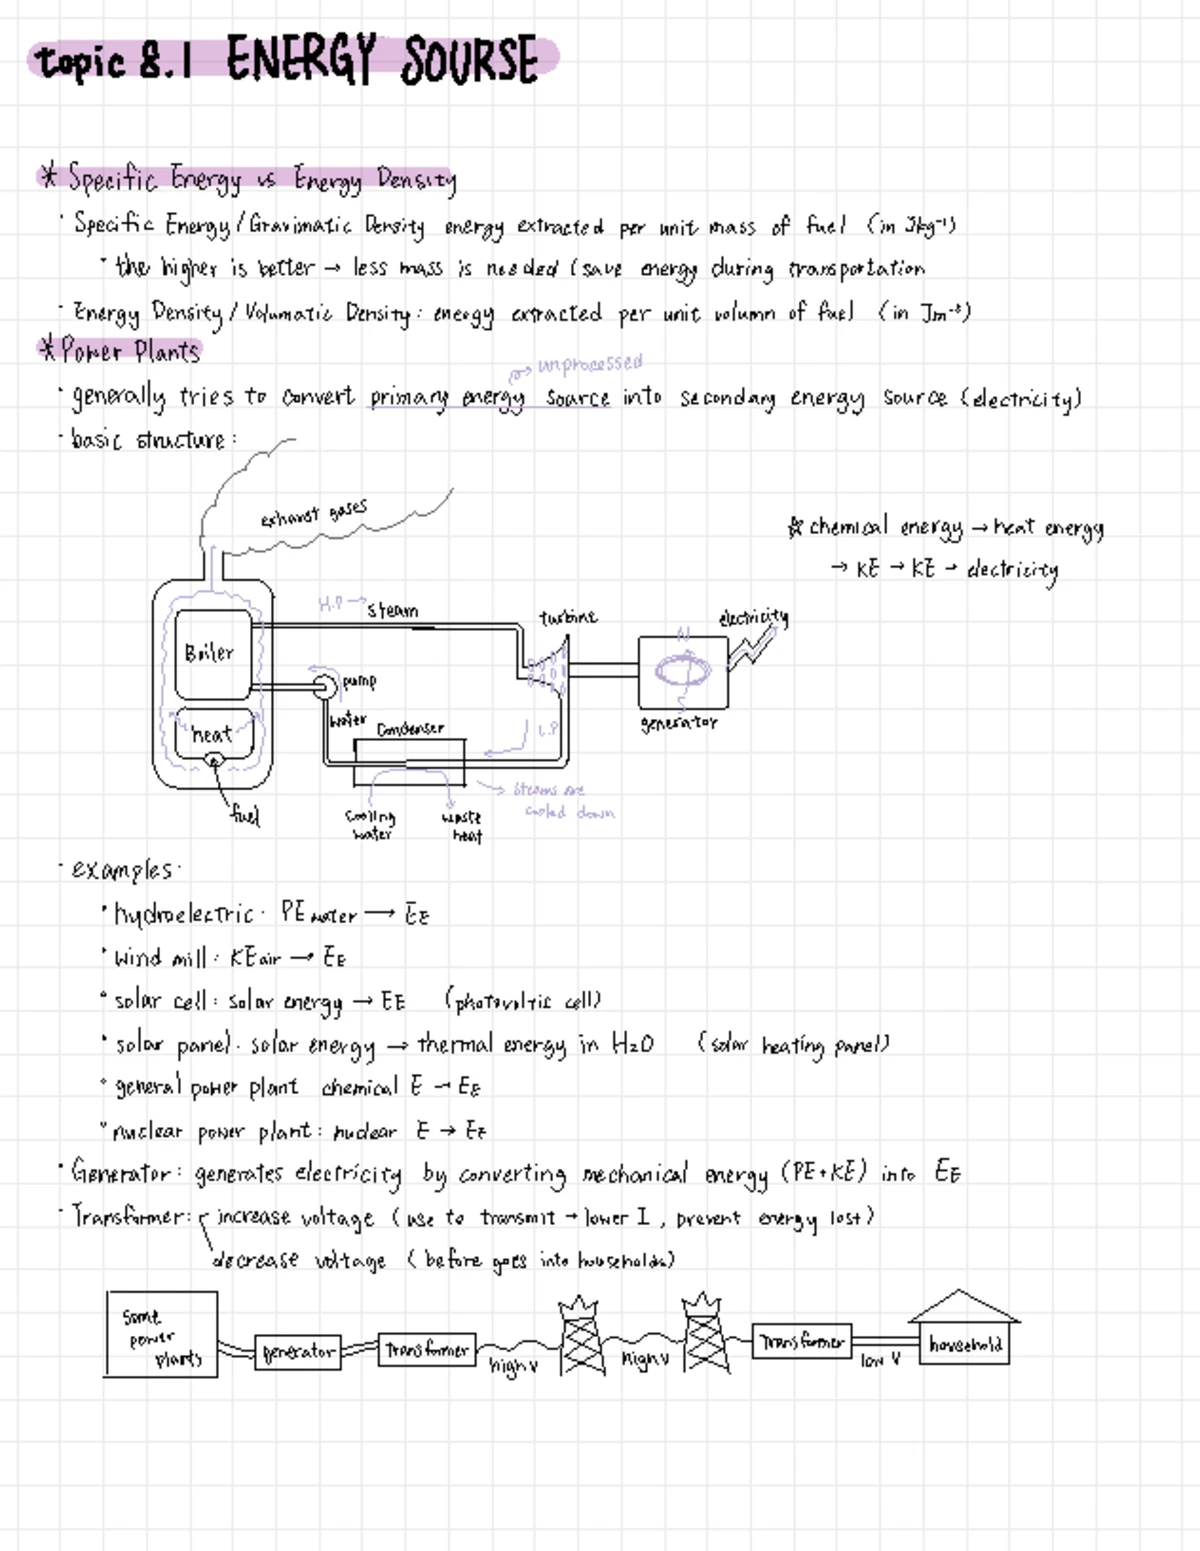 topic 8.1 ENERGY SOURSE
* Specific Energy vs Energy Density
· Specific Energy / Gravimatic Density energy extracted per unit mass of fuel (in Jkg⁻¹)
· the higher is better → less mass is needed (save energy during transportation
· Energy Density / Volumatic Density: energy extracted per unit volumn of fuel (in Jm⁻³)
* Power Plants
unprocessed
· generally tries to convert primary energy source into secondary energy source (electricity)
· basic structure:
exhaust gases
☆ chemical energy → heat energy
→ KE → KE → electricity
H.P → steam
turbine
electricity
Boiler
pump
generator
water
heat
Condenser
L.P
→ steams are
cooled down
fuel
cooling
water
waste
heat
· examples:
· hydroelectric: PE water → EE
· wind mill: KE air → EE
· solar cell: solar energy → EE (photovoltic cell)
· solar panel: solar energy → thermal energy in H2O (solar heating panel)
· general power plant chemical E → EE
· nuclear power plant: nuclear E → EE
· Generator: generates electricity by converting mechanical energy (PE+KE) into EE
· Transformer: increase voltage (use to transmit → lower I, prevent energy lost)
decrease voltage (before goes into households)
Some
power
plants
generator
Transformer
high V
high V
Transformer
low V
household